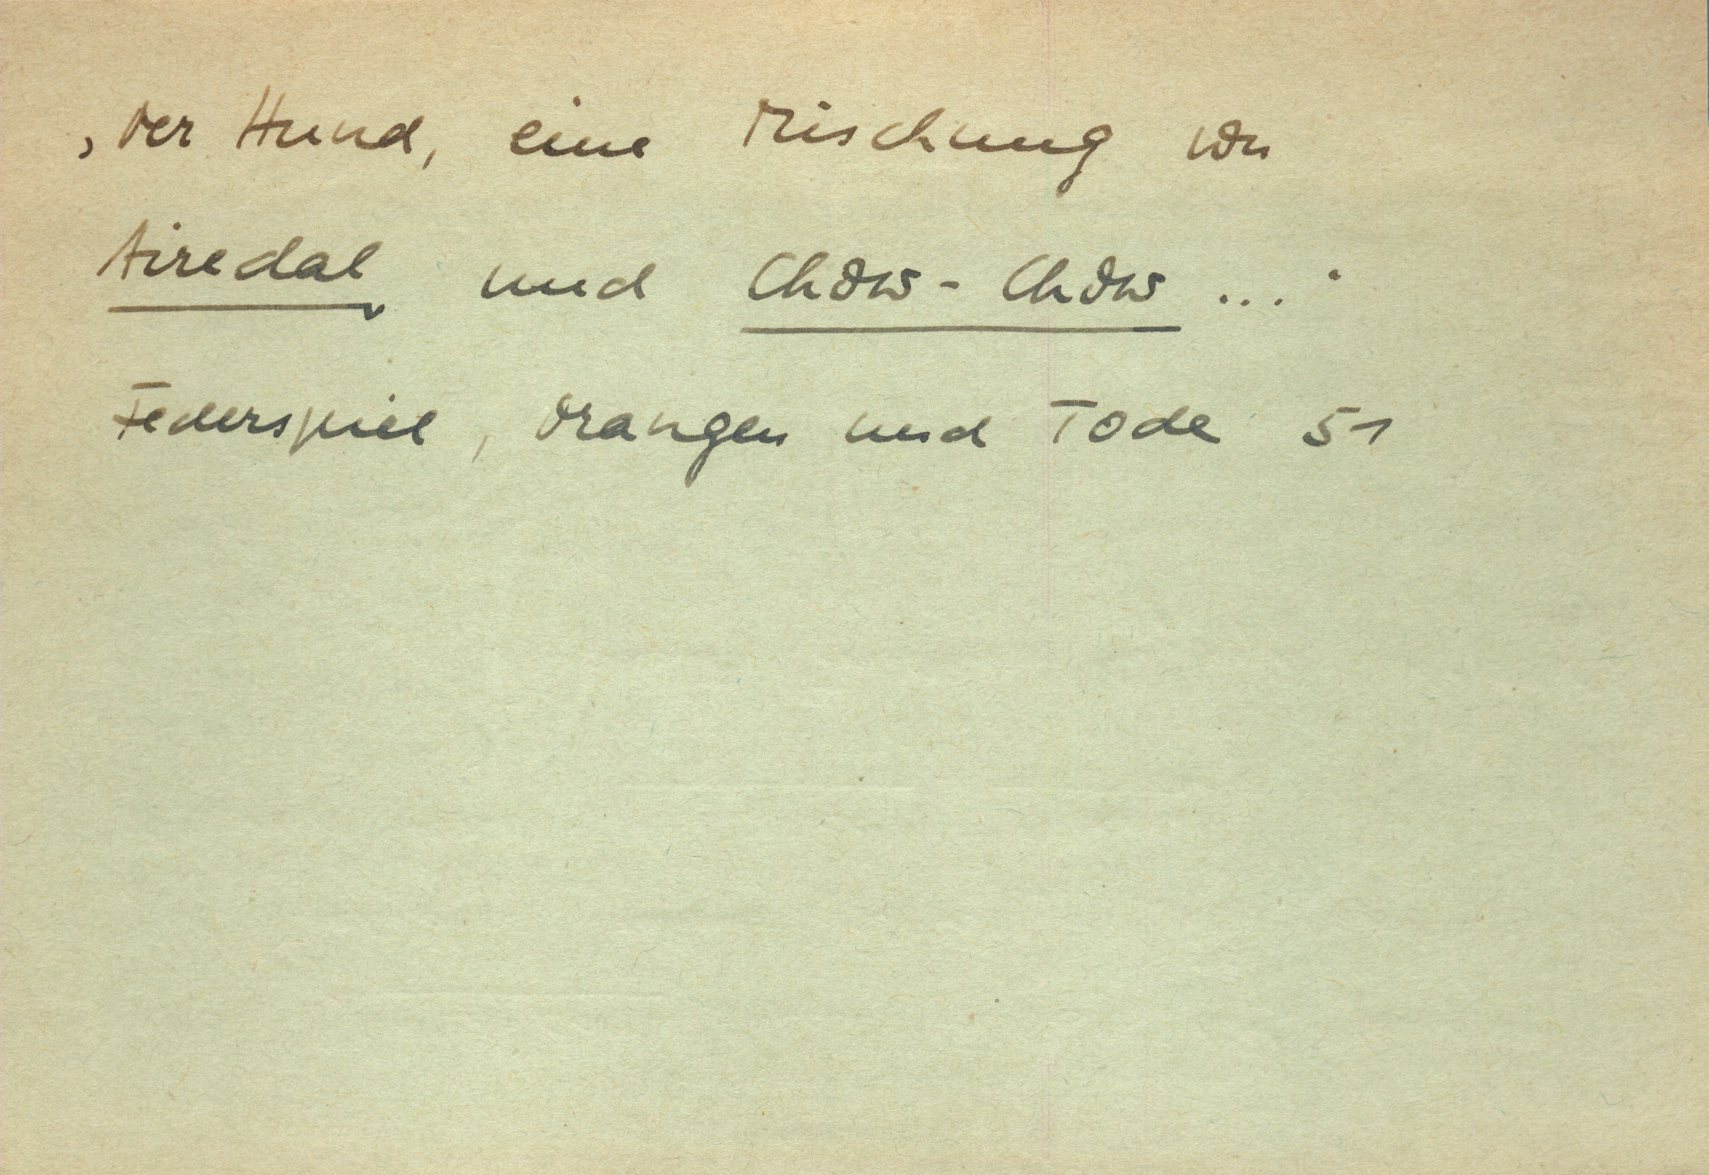 ‚Der Hund, eine Mischung von
Airedal und Chow-Chow ...'
Federspiel, Orangen und Tode 51